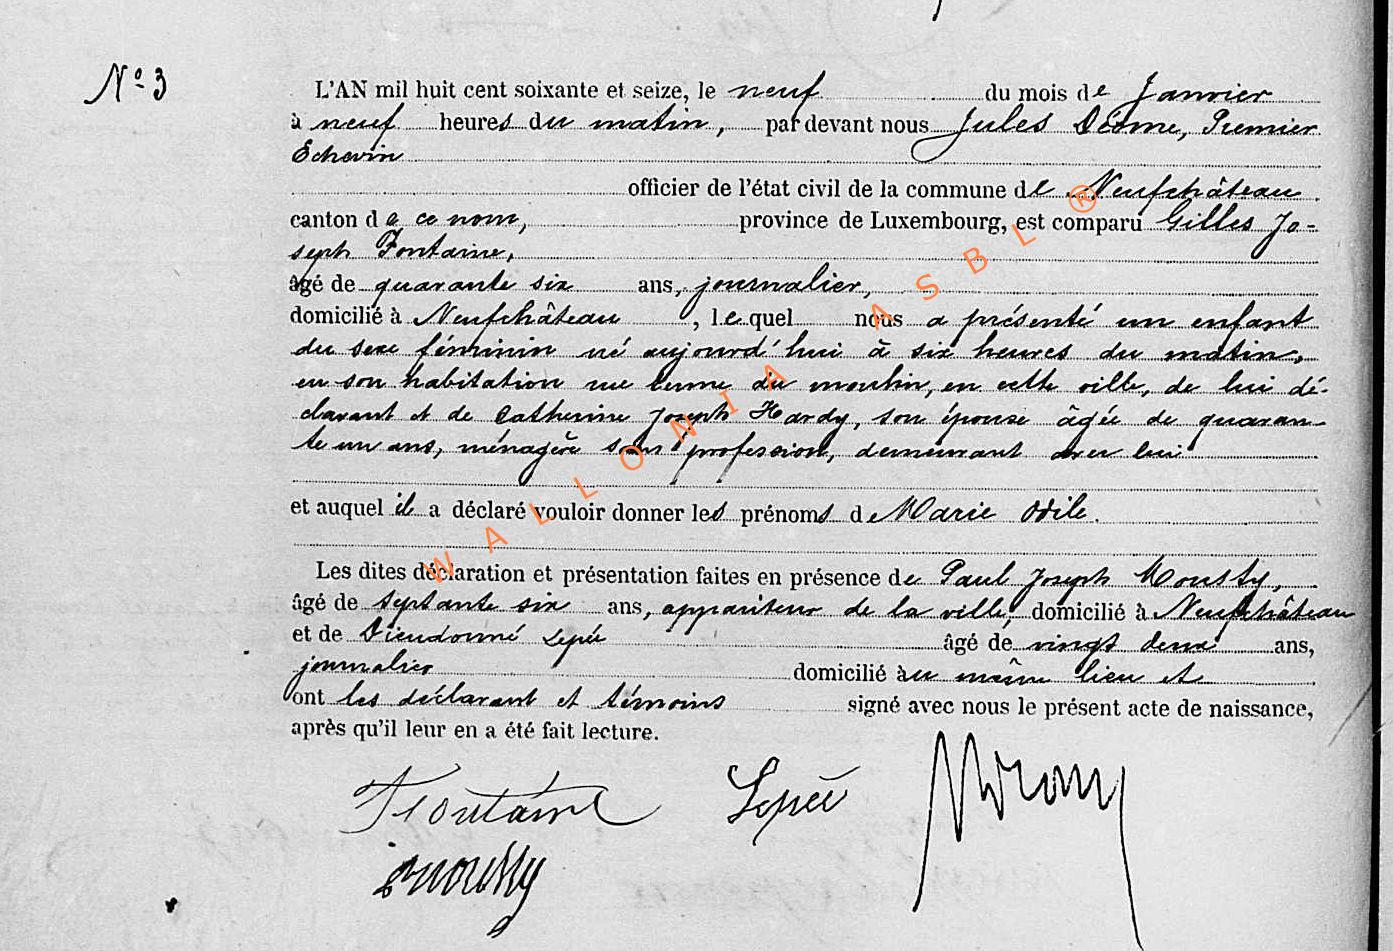 Nº 3
L'AN mil huit cent soixante et seize, le neuf du mois de Janvier
à neuf heures du matin, par devant nous Jules Déome, Premier
Echevin
officier de l'état civil de la commune de Neufchâteau
canton de ce nom, province de Luxembourg, est comparu Gilles Jo-
seph Fontaine,
âgé de quarante six ans, journalier,
domicilié à Neufchâteau, lequel nous a présenté un enfant
du sexe féminin né aujourd'hui à six heures du matin,
en son habitation rue terme du moulin, en cette ville, de lui dé-
clarant et de Catherine Joseph Hardy, son épouse âgée de quaran-
te un ans, ménagère sans profession, demeurant avec lui
et auquel il a déclaré vouloir donner les prénoms d Marie Odile.
Les dites déclaration et présentation faites en présence de Paul Joseph Mousty,
âgé de septante six ans, appariteur de la ville, domicilié à Neufchâteau
et de Dieudonné Lepée âgé de vingt deux ans,
journalier domicilié au même lieu et
ont les déclarant et témoins signé avec nous le présent acte de naissance,
après qu'il leur en a été fait lecture.
Fontaine Lepée
Mousty
WALLONIA ASBL ®